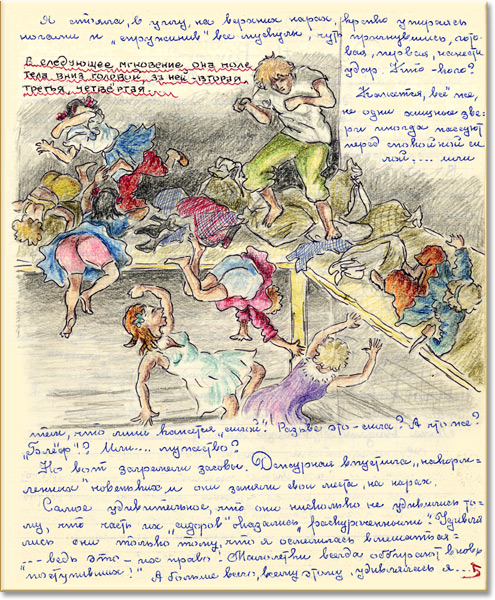 Я стояла, в углу, на верхних нарах, крепко упираясь
ногами и „спружинив" все мускулы, чуть пригнувшись, гото-
вая, первая, нанести
удар. Кто – кого?
В следующее мгновение она поле
тела вниз головой, за ней – вторая
третья, четвёртая....
Кажется, всё же,
не одни хищные зве-
ри иногда пасуют
перед спокойной си
лой.... или
тем, что лишь кажется „силой". Разве это – сила? А что же?
„Блеф"? Или.... мужество?
Но вот загремели засовы. Дежурная впустила „накорм-
ленных" новеньких и они заняли свои места на нарах.
Самое удивительное, что они нисколько не удивились то-
му, что часть их „сидоров" оказались „раскуроченными". Удивля
лись они только тому, что я осмелилась вмешаться =
"---ведь это – их право! Малолетки всегда обирают вновь
поступивших!" А больше всего, всему этому, удивлялась я....